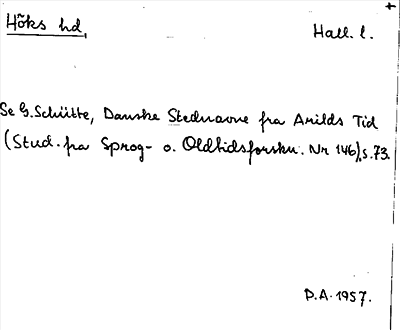 Höks hd.
Hall. l.
Se G. Schütte, Danske Stednavne fra Arilds Tid
(Stud. fra Sprog- o. Oldtidsforskn. Nr 146), s. 73.
D.A. 1957.